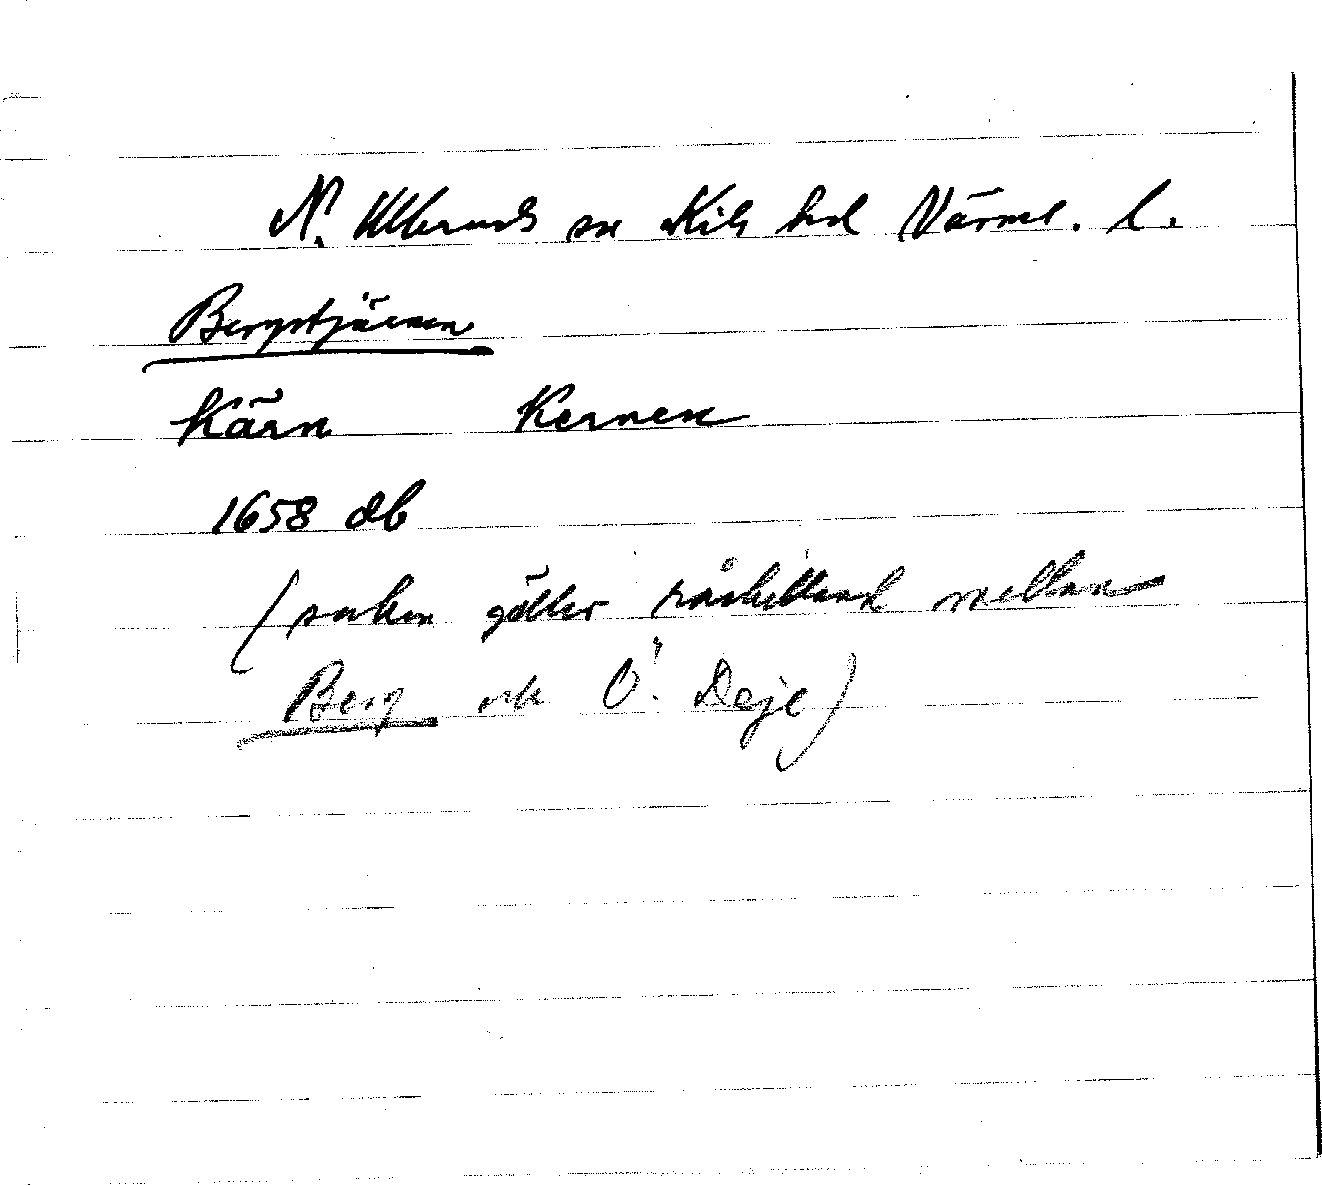 N. Ullerud sn Kils hd Värml. l.
Bergstjärnen
Kärn Kernen
1658 db
(saken gäller råskillnad mellan
Berg och Ö. Deje)